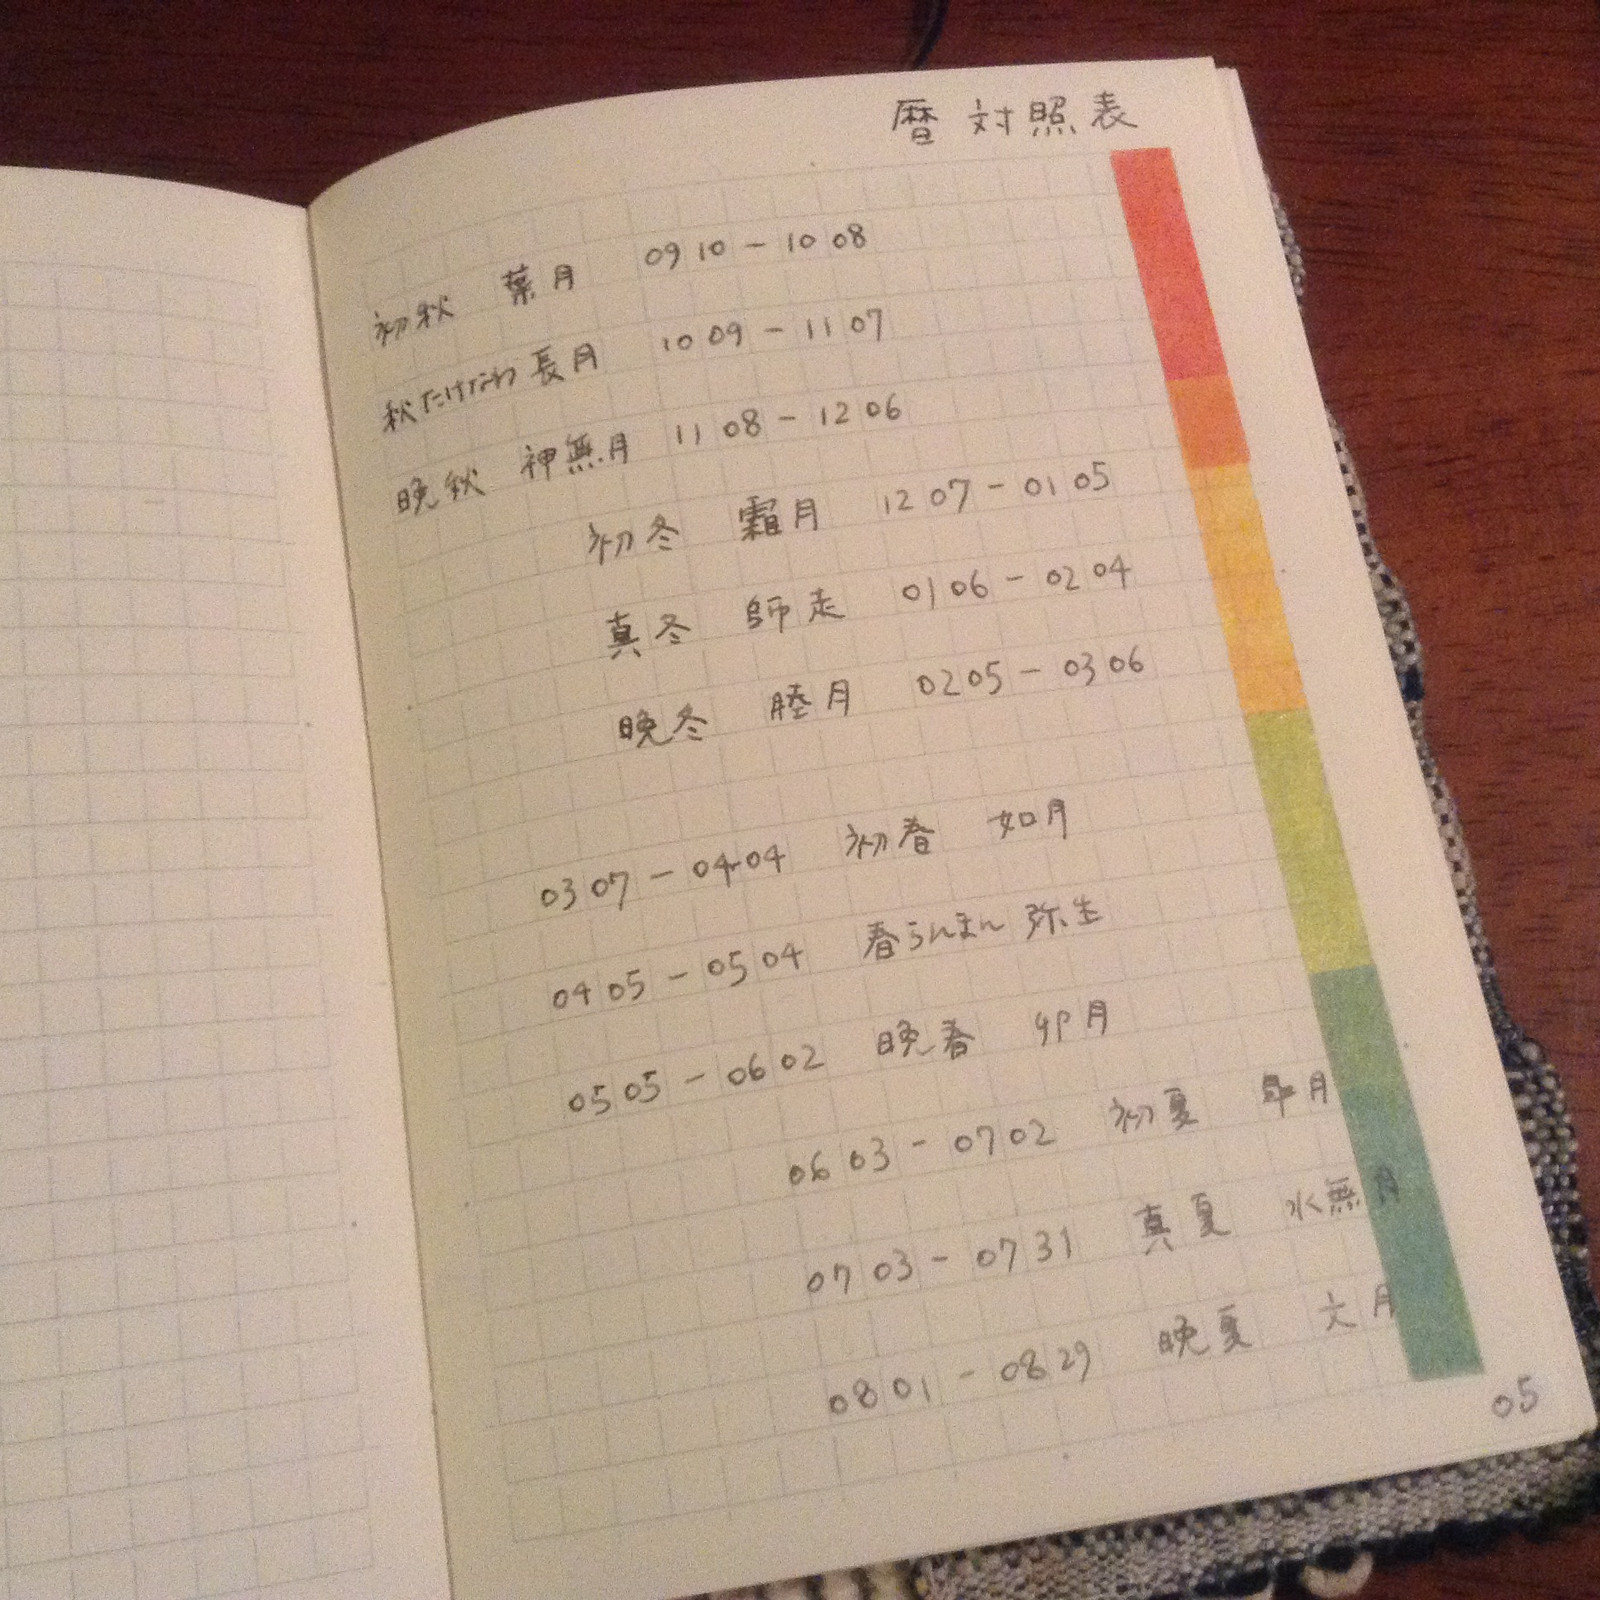 暦 対照表
初秋 葉月 09 10 - 10 08
秋たけなわ 長月 10 09 - 11 07
晩秋 神無月 11 08 - 12 06
初冬 霜月 12 07 - 01 05
真冬 師走 01 06 - 02 04
晩冬 睦月 02 05 - 03 06
03 07 - 04 04 初春 如月
04 05 - 05 04 春らんまん 弥生
05 05 - 06 02 晩春 卯月
06 03 - 07 02 初夏 皐月
07 03 - 07 31 真夏 水無月
08 01 - 08 29 晩夏 文月
05